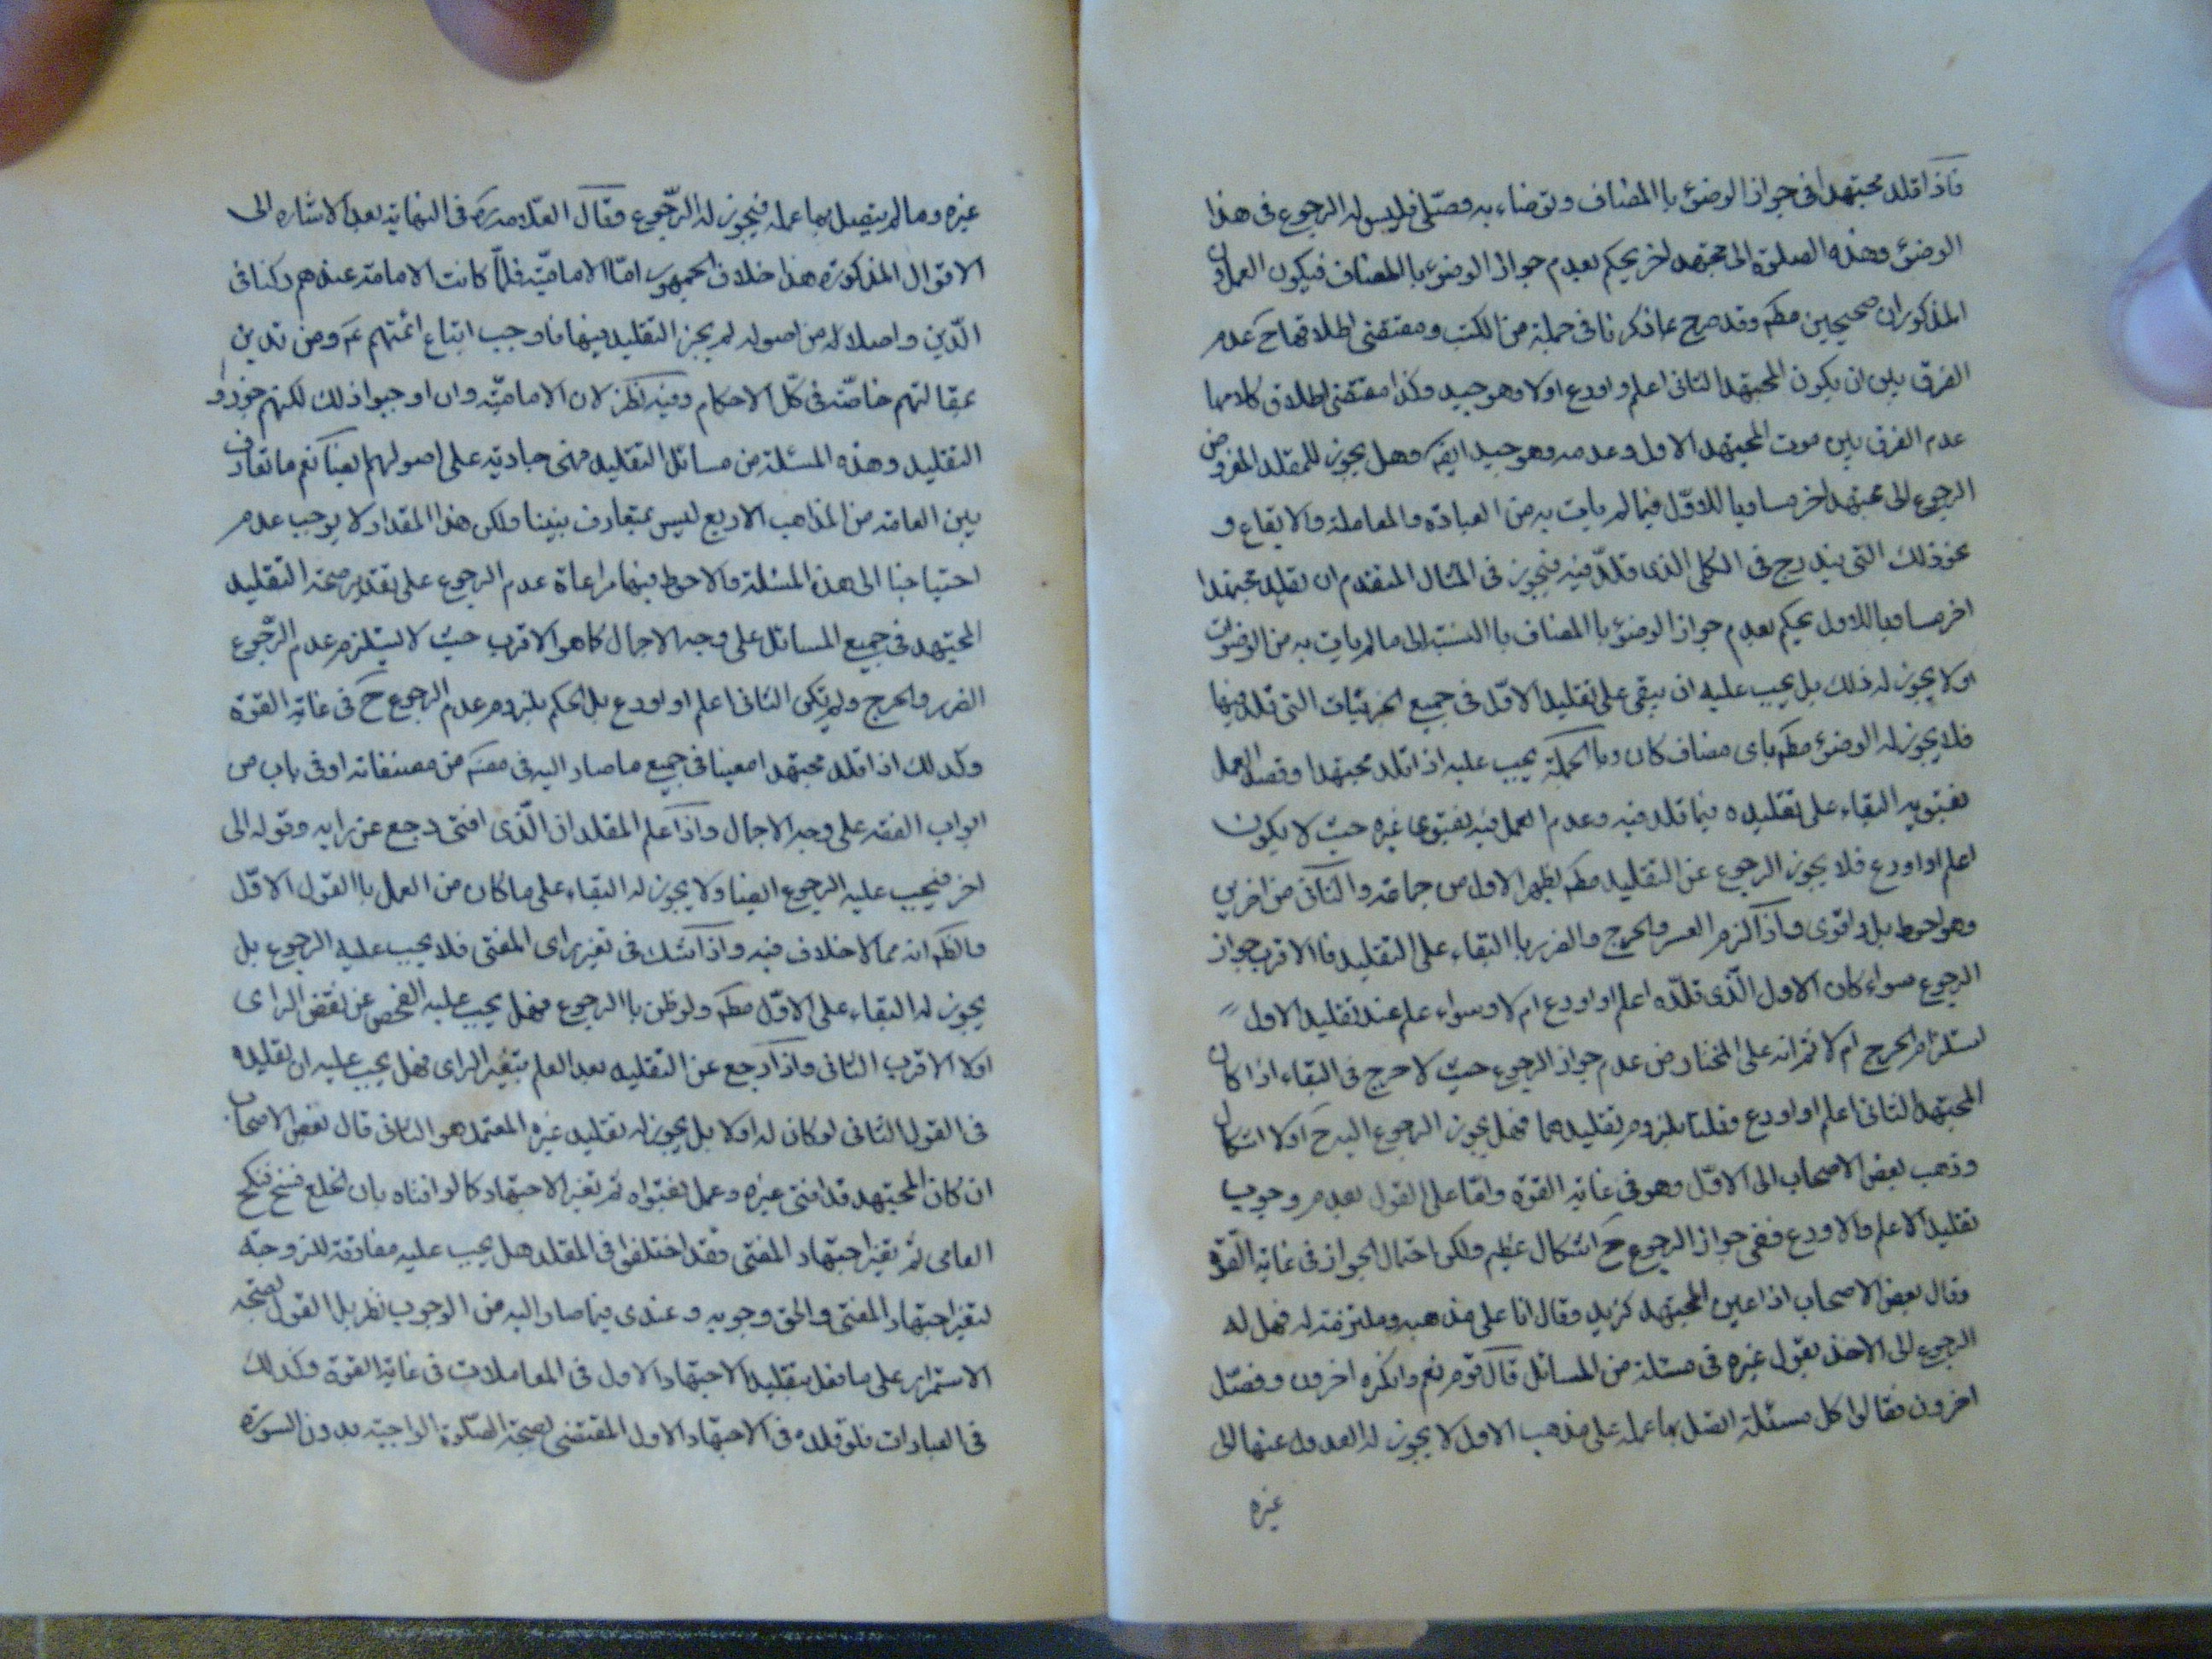 فاذا قلد مجتهدا فى جواز الوضوء باالمضاف وتوضاء به وصلى فليس له الرجوع فى هذا
الوضوء وهذه الصلوة الى مجتهد اخر يحكم بعدم جواز الوضوء باالمضاف فيكون العملان
المذكوران صحيحين مطم وقد صرح بما ذكرنا فى جملة من الكتب ومقتضى اطلاقها ح عدم
الفرق بين ان يكون المجتهد الثانى اعلم واورع اولا وهو جيد وكذا مقتضى اطلاق كلامهما
عدم الفرق بين موت المجتهد الاول وعدمه وهو جيد ايضا وهل يجوز للمقلد المفروض
الرجوع الى مجتهد اخر مساويا للاوّل فيما لم يات به من العبادة والمعاملة والايقاع و
نحو ذلك التى يندرج فى الكلى الذى قلّد فيه فيجوز فى المثال المتقدم ان يقلد مجتهدا
اخر مساويا للاول يحكم بعدم جواز الوضوء باالمضاف باالنسبة الى مالم يات به من الوضوءات
اولا يجوز له ذلك بل يجب عليه ان يبقى على تقليد الاوّل فى جميع الجزئيات التى قلد فيها
فلا يجوز له الوضوء مطم باى مضاف كان وباالجملة يجب عليه اذا قلد مجتهدا وقصد العمل
بفتويه البقاء على تقليده فيما قلد فيه وعدم العمل فيه بفتوى غيره حيث لا يكون
اعلم او اورع فلا يجوز الرجوع عن التقليد مطم يظهر الاول من جماعة والثانى من اخرين
وهو احوط بل واقوى واذا لزم العسر والحرج والضرر باالبقاء على التقليد فاالاقرب جواز
الرجوع سواء كان الاول الّذى قلّده اعلم او اورع ام لا وسواء علم عند تقليد الاول
استلزام الحرج ام لا ثم انه على المختار من عدم جواز الرجوع حيث لا حرج فى البقاء اذا كان
المجتهد الثانى اعلم او اورع وقلنا بلزوم تقليدهما فهل يجوز الرجوع اليه ح اولا اشكال
وذهب بعض الاصحاب الى الاوّل وهو فى غاية القوة وامّا على القول بعدم وجوب
تقليد الاعلم والاورع ففى جواز الرجوع ح اشكال عظيم ولكن احتمال الجواز فى غاية القوة
وقال بعض الاصحاب اذا عين المجتهد كزيد وقال انا على مذهبه وملتزمة له فهل له
الرجوع الى الاخذ بقول غيره فى مسئلة من المسائل قال قوم نعم وانكره اخرون وفصّل
اخرون فقالوا كل مسئلة اتصل بها عمله على مذهب الاول لا يجوز له العدول عنها الى
غيره
غيره ومالم يتصل بها عمله فيجوز له الرّجوع وقال العلامة ره فى النهاية بعد الاشاره الى
الاقوال المذكوره هذا خلاف الجمهور امّا الاماميّة فلمّا كانت الامامة عندهم ركنا فى
الدّين واصلا له من اصوله لم يجز التقليد فيها فاوجب اتباع ائمّتهم ع ومن تدين
بمقالتهم خاصّة فى كلّ الاحكام وفيه نظر لان الاماميّة وان اوجبوا ذلك لكنهم جوزوا
التقليد وهذه المسئلة من مسائل التقليد فهى جارية على اصولهم ايضا نعم ما تعارف
بين العامة من المذاهب الاربع ليس بمتعارف بيننا ولكن هذا المقدار لا يوجب عدم
احتياجنا الى هذه المسئلة والاحوط فيها مراعاة عدم الرجوع على تقدير صحة التقليد
المجتهد فى جميع المسائل على وجه الاجمال كما هو الاقرب حيث لا يستلزم عدم الرّجوع
الضرر والحرج ولم يكن الثانى اعلم او اورع بل الحكم بلزوم عدم الرجوع ح فى غاية القوّة
وكذلك اذا قلد مجتهدا معينا فى جميع ما صار اليه فى من مصنفاته او فى باب من
ابواب الفقه على وجه الاجمال واذا علم المقلد ان الّذى افتى رجع عن رايه وقوله الى
اخر فيجب عليه الرجوع ايضا ولا يجوز له البقاء على ما كان من العمل باالقول الاوّل
والظم انه مما لا خلاف فيه واذا شك فى تغير راى المفتى فلا يجب عليه الرجوع بل
يجوز له البقاء على الاوّل مطم ولو ظن باالرجوع فهل يجب عليه الفحص عن نقض الراى
اولا الاقرب الثانى واذا رجع عن التقليد بعد العلم بتغير الراى فهل يجب عليه ان يقلده
فى القول الثانى لو كان له اولا بل يجوز له تقليد غيره المعتمد هو الثانى قال بعض الاصحاب
ان كان المجتهد قد افتى غيره وعمل بفتواه ثم تغير الاجتهاد كما لو افتاه بان الخلع فسخ فنكح
العامى ثم تغير اجتهاد المفتى فقد اختلفوا فى المقلد هل يجب عليه مفارقة للزوجة
لتغير اجتهاد المفتى والحق وجوبه وعندى فيما صار اليه من الوجوب نظر بل القول بصحة
الاستمرار على ما فعل بتقليد الاجتهاد الاول فى المعاملات فى غاية القوة وكذلك
فى العبادات فلو قلده فى الاجتهاد الاول المقتضى لصحة الصّلوة الواجبة بدون السورة